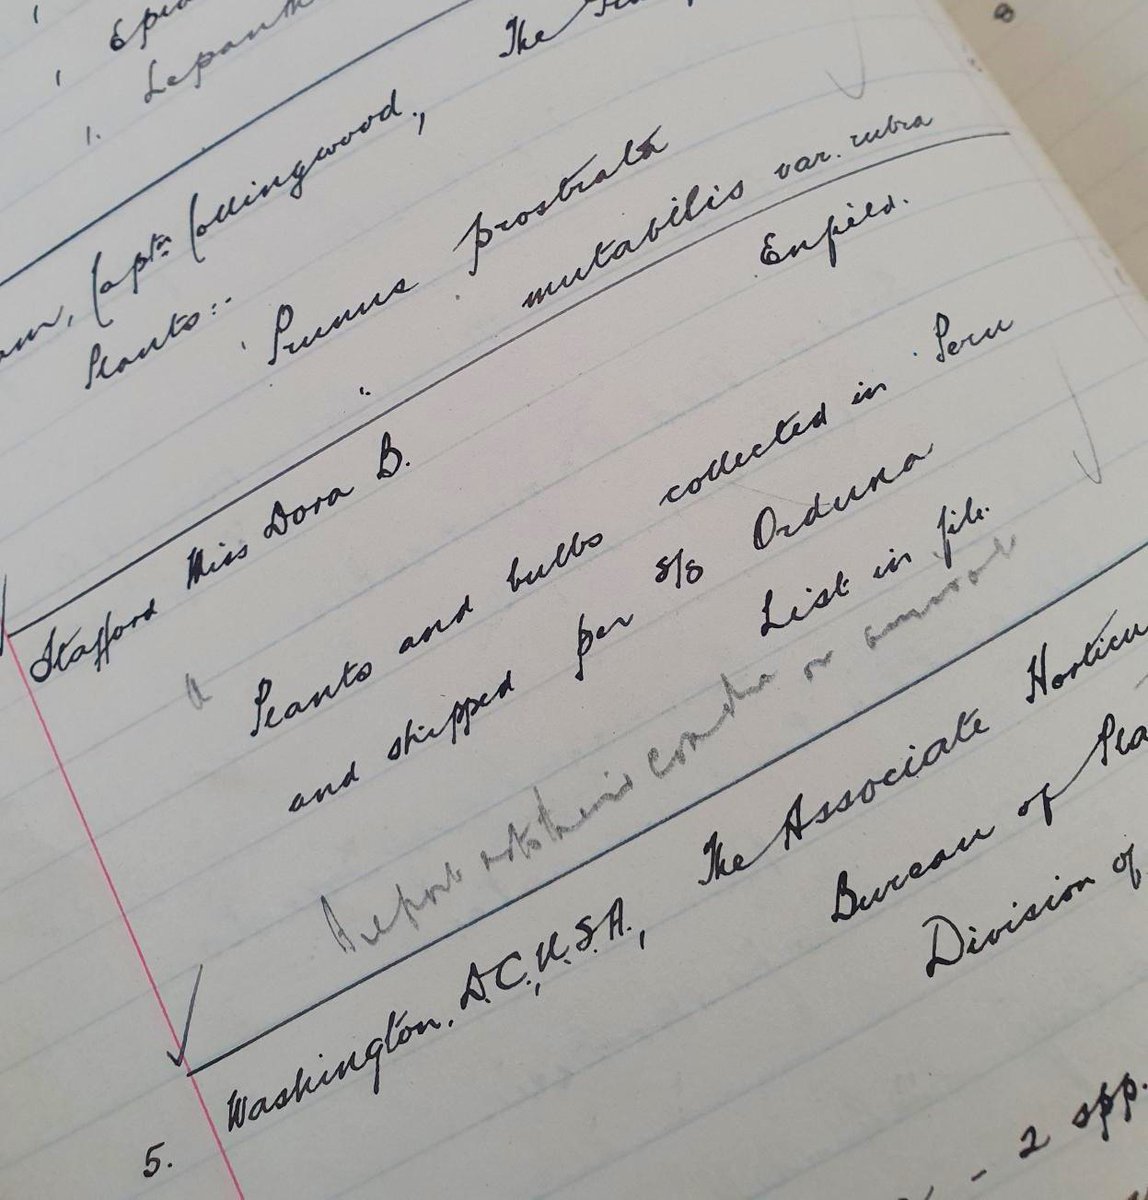 8
1. Lepanth
Captn Collingwood, The
Plants:-
' Prunus prostrata
" . mutabilis var. rubra
Stafford Miss Dora B. Enfield.
Plants and bulbs collected in Peru
and shipped per s/s Orduna
List in file.
Report on their condition or
Washington, D.C., U.S.A., The Associate Horticu
Bureau of Pla
Division of
5. - 2 spp.